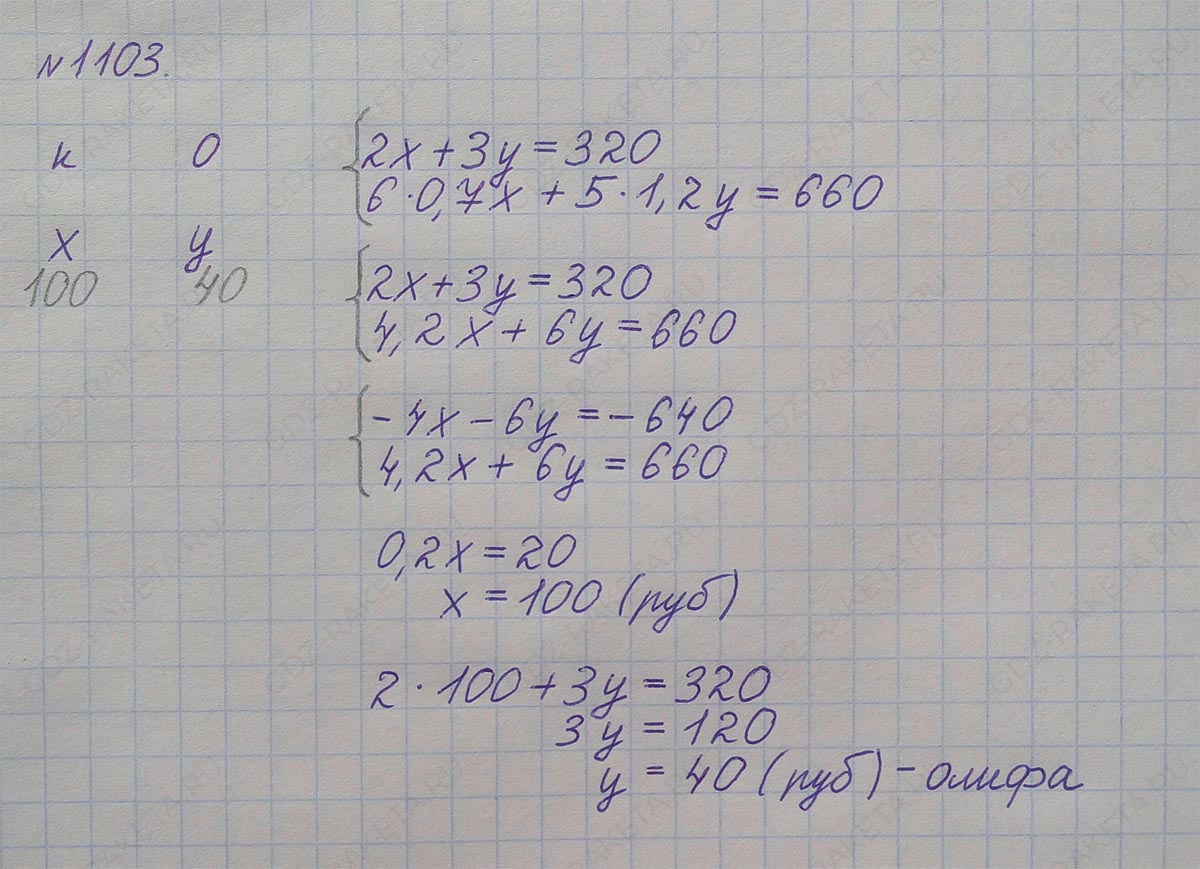 N1103.
к О
x y
100 40
2x+3y=320
6·0,7x+5·1,2y=660
2x+3y=320
4,2x+6y=660
-4x-6y=-640
4,2x+6y=660
0,2x=20
x=100 (руб)
2·100+3y=320
3y=120
y=40 (руб)-олифа